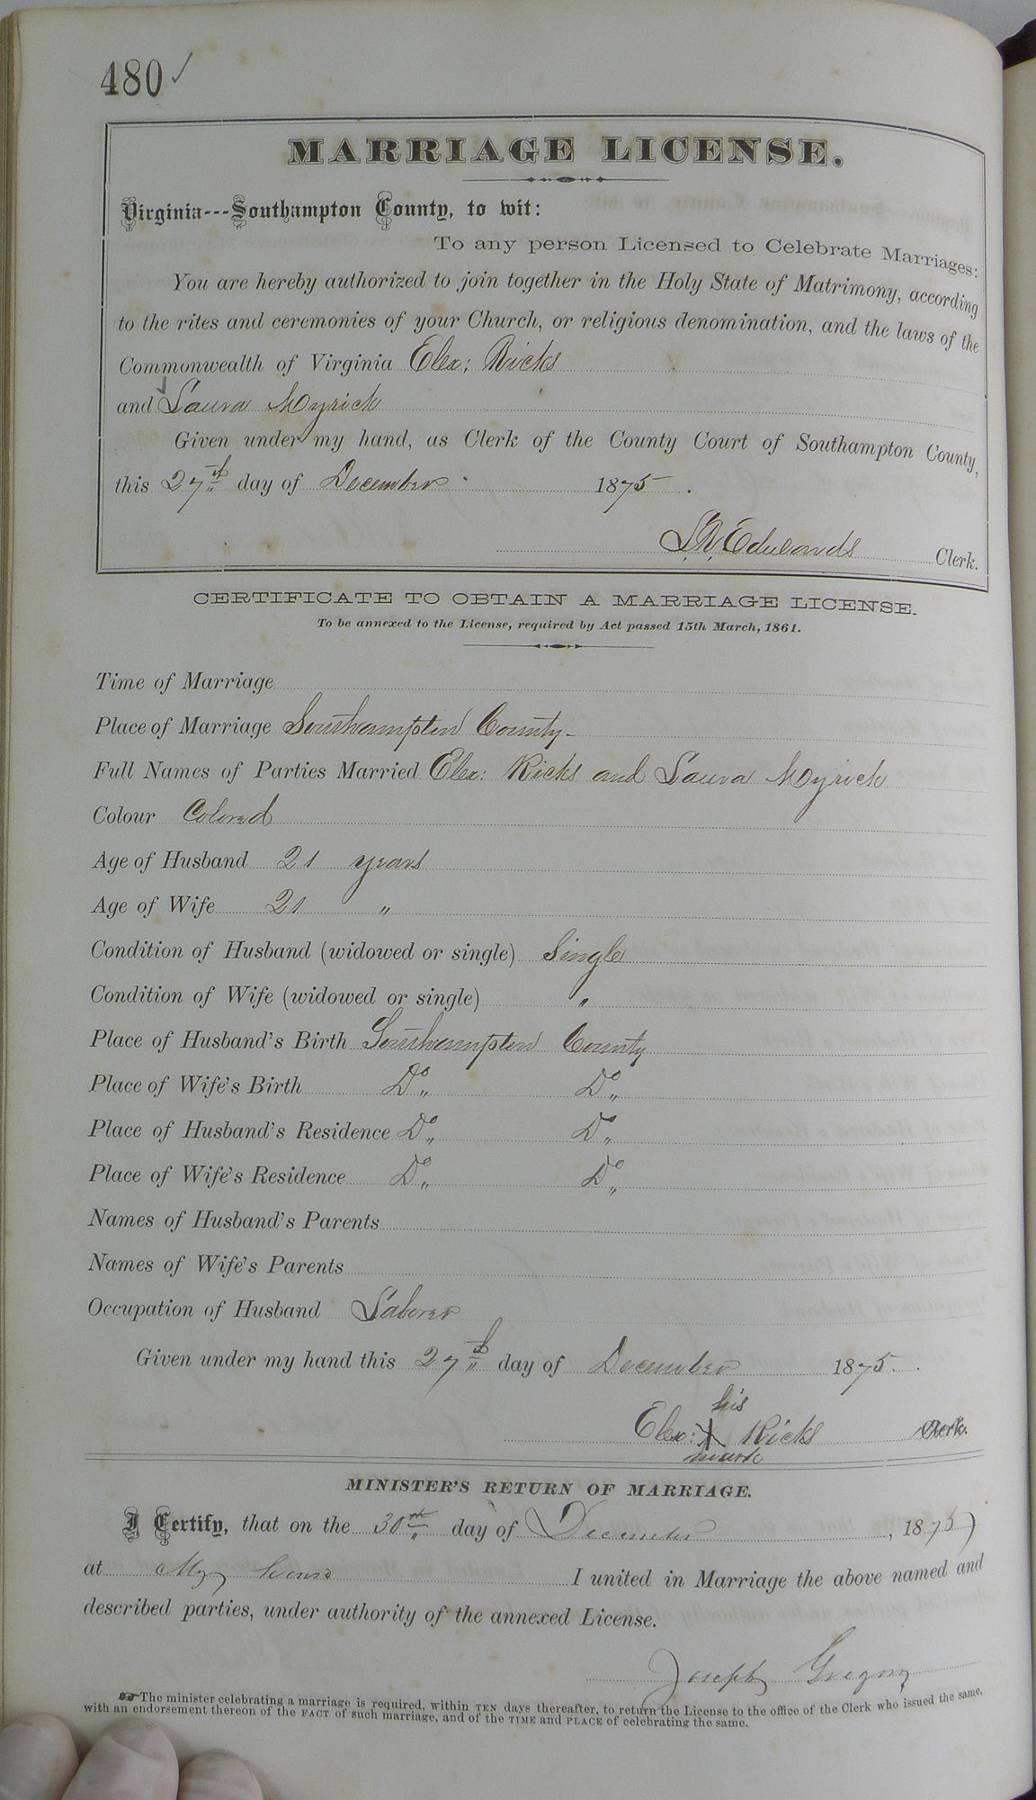 480 ✓
MARRIAGE LICENSE.
Virginia---Southampton County, to wit:
To any person Licensed to Celebrate Marriages:
You are hereby authorized to join together in the Holy State of Matrimony, according
to the rites and ceremonies of your Church, or religious denomination, and the laws of the
Commonwealth of Virginia Elex: Ricks
and Laura Myrick
Given under my hand, as Clerk of the County Court of Southampton County,
this 27th day of December 1875.
L.R. Edwards Clerk.
CERTIFICATE TO OBTAIN A MARRIAGE LICENSE.
To be annexed to the License, required by Act passed 15th March, 1861.
Time of Marriage
Place of Marriage Southampton County-
Full Names of Parties Married Elex: Ricks and Laura Myrick
Colour Colored
Age of Husband 21 years
Age of Wife 21 "
Condition of Husband (widowed or single) Single
Condition of Wife (widowed or single) "
Place of Husband's Birth Southampton County
Place of Wife's Birth Do Do
Place of Husband's Residence Do Do
Place of Wife's Residence Do Do
Names of Husband's Parents
Names of Wife's Parents
Occupation of Husband Laborer
Given under my hand this 27th day of December 1875.
his
Elex: X Ricks Clerk.
mark
MINISTER'S RETURN OF MARRIAGE.
I Certify, that on the 30th day of December, 1875
at My I united in Marriage the above named and
described parties, under authority of the annexed License.
Joseph Gregory
☞The minister celebrating a marriage is required, within TEN days thereafter, to return the License to the office of the Clerk who issued the same,
with an endorsement thereon of the FACT of such marriage, and of the TIME and PLACE of celebrating the same.